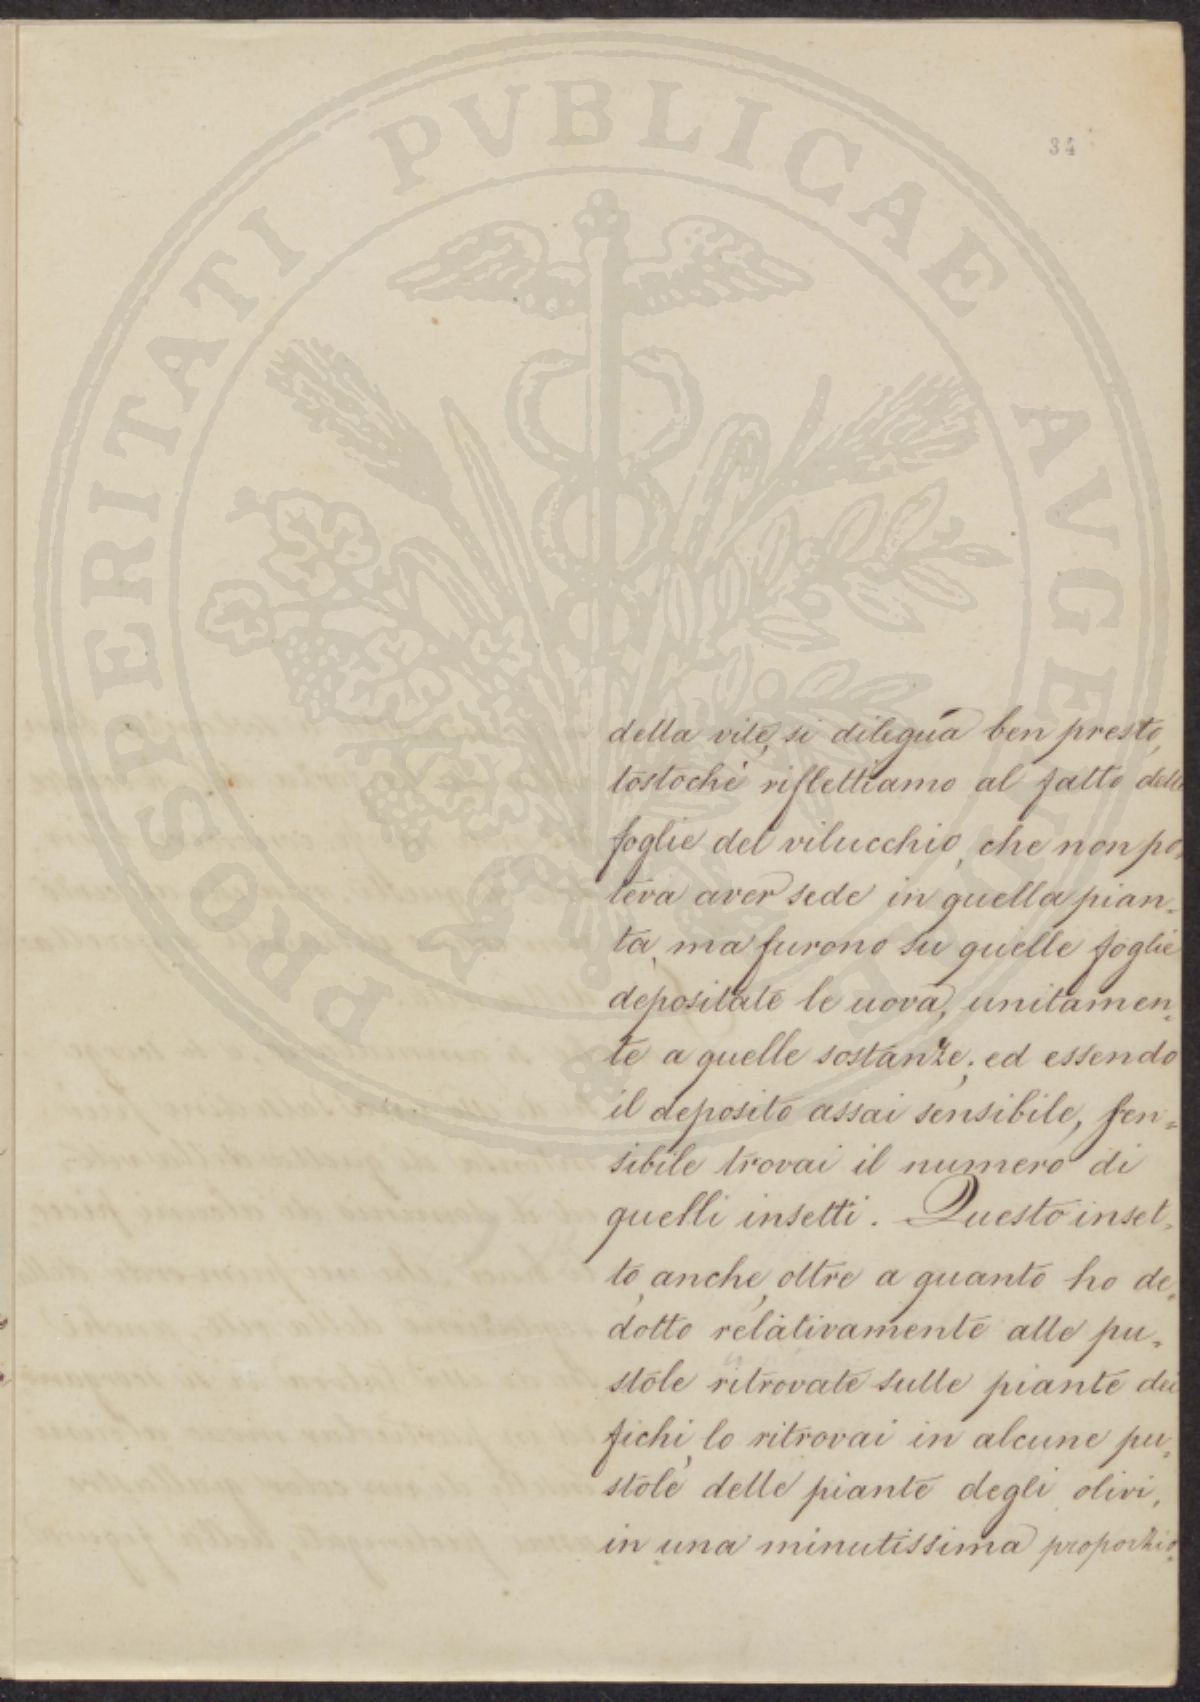 34
PROSPERITATI PVBLICAE AVGENDAE
della vite, si dilegua ben presto,
tostochè riflettiamo al fatto delle
foglie del vilucchio, che non po=
teva aver sede in quella pian=
ta, ma furono su quelle foglie
depositate le uova, unitamen=
te a quelle sostanze; ed essendo
il deposito assai sensibile, sen=
sibile trovai il numero di
quelli insetti. Questo inset=
to, anche, oltre a quanto ho de=
dotto relativamente alle pu=
stole ritrovate sulle piante dei
fichi, lo ritrovai in alcune pu=
stole delle piante degli olivi,
in una minutissima proporzio=